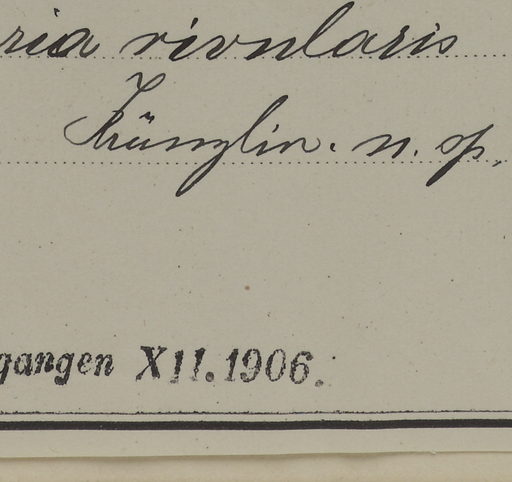 ria rivularis
Kränzlin. n. sp.
gangen XII.1906.